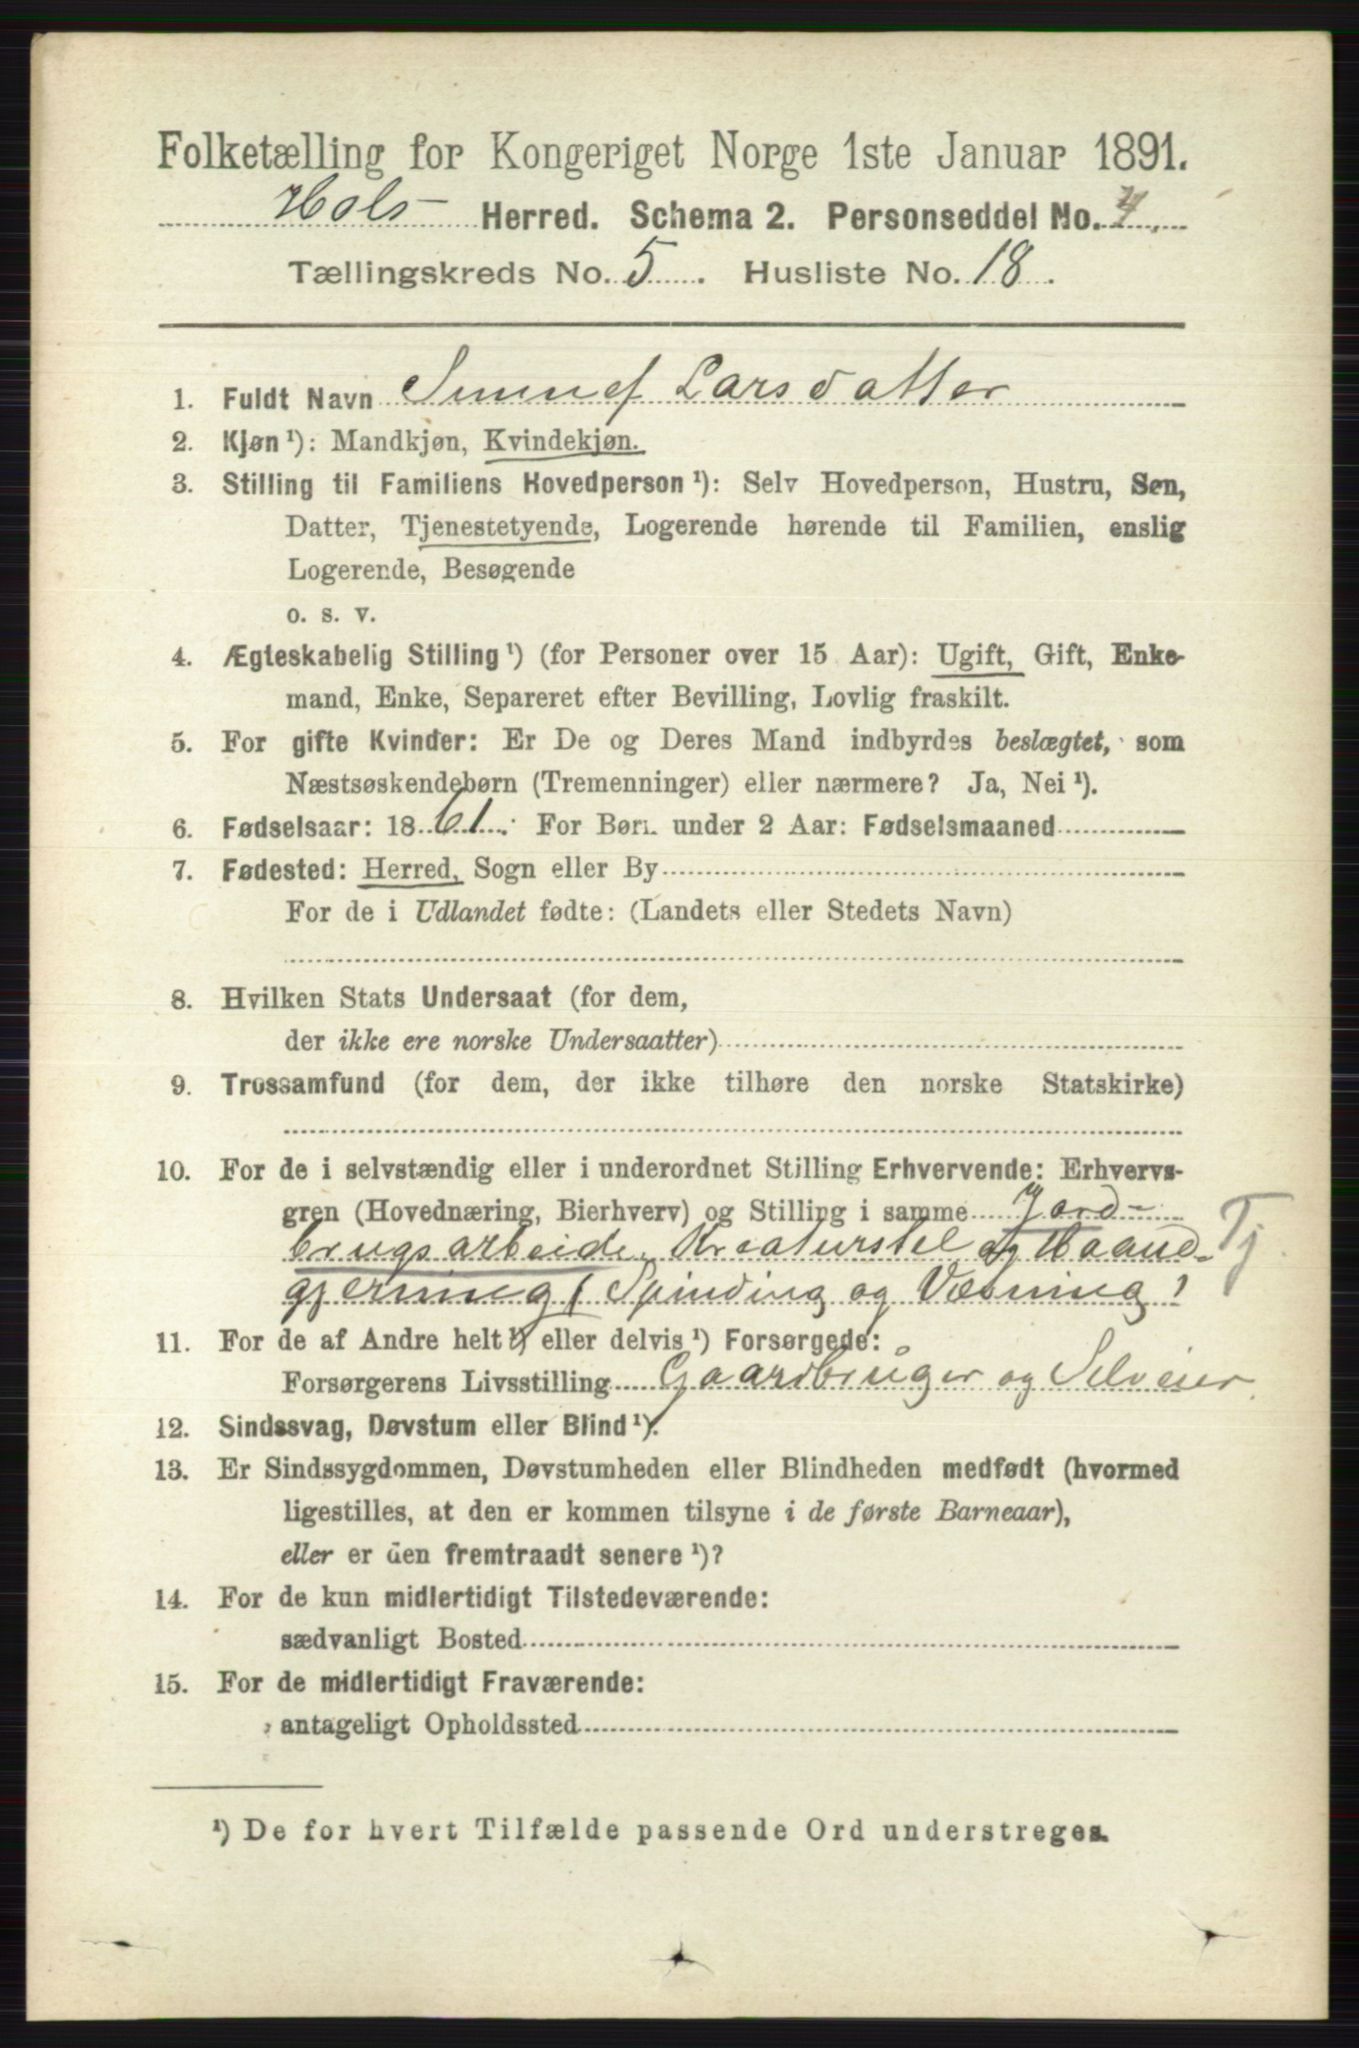 Folketælling for Kongeriget Norge 1ste Januar 1891.
Hols Herred. Schema 2. Personseddel No. 4.
Tællingskreds No. 5. Husliste No. 18.
1. Fuldt Navn Sunnef Larsdatter
2. Kjøn ¹): Mandkjøn, Kvindekjøn.
3. Stilling til Familiens Hovedperson ¹): Selv Hovedperson, Hustru, Søn,
Datter, Tjenestetyende, Logerende hørende til Familien, enslig
Logerende, Besøgende
o. s. v.
4. Ægteskabelig Stilling ¹) (for Personer over 15 Aar): Ugift, Gift, Enke-
mand, Enke, Separeret efter Bevilling, Lovlig fraskilt.
5. For gifte Kvinder: Er De og Deres Mand indbyrdes beslægtet, som
Næstsøskendebørn (Tremenninger) eller nærmere? Ja, Nei ¹).
6. Fødselsaar: 1861. For Børn under 2 Aar: Fødselsmaaned
7. Fødested: Herred, Sogn eller By
For de i Udlandet fødte: (Landets eller Stedets Navn)
8. Hvilken Stats Undersaat (for dem,
der ikke ere norske Undersaatter)
9. Trossamfund (for dem, der ikke tilhøre den norske Statskirke)
10. For de i selvstændig eller i underordnet Stilling Erhvervende: Erhvervs-
gren (Hovednæring, Bierhverv) og Stilling i samme Jord-
brugsarbeide, Kreaturstel og Haand- Tj
gjerning (Spinding og Vævning)
11. For de af Andre helt ¹) eller delvis ¹) Forsørgede:
Forsørgerens Livsstilling Gaardbruger og Selveier
12. Sindssvag, Døvstum eller Blind ¹).
13. Er Sindssygdommen, Døvstumheden eller Blindheden medfødt (hvormed
ligestilles, at den er kommen tilsyne i de første Barneaar),
eller er den fremtraadt senere ¹)?
14. For de kun midlertidigt Tilstedeværende:
sædvanligt Bosted
15. For de midlertidigt Fraværende:
antageligt Opholdssted
¹) De for hvert Tilfælde passende Ord understreges.